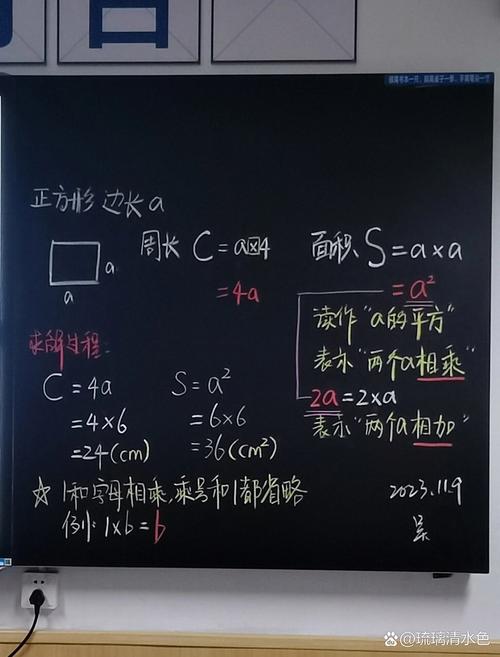 正方形 边长a
周长 C=a×4
=4a
a
a
面积 S=a×a
=a²
读作"a的平方"
表示"两个a相乘"
2a=2×a
表示"两个a相加"
求解过程:
C=4a
=4×6
=24(cm)
S=a²
=6×6
=36(cm²)
☆ 1和字母相乘,乘号和1都省略
例: 1×b=b
2023.11.9
吴
@琉璃清水色